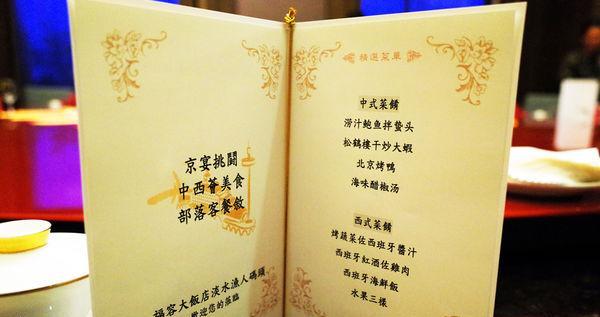 京宴挑鬪
中西薈美食
部落客餐敘
福容大飯店淡水漁人碼頭
歡迎您的蒞臨
精選菜單
中式菜餚
涝汁鲍鱼拌蛰头
松鶴樓干炒大蝦
北京烤鴨
海味醋椒汤
西式菜餚
烤蔬菜佐西班牙醬汁
西班牙紅酒佐雞肉
西班牙海鮮飯
水果三樣